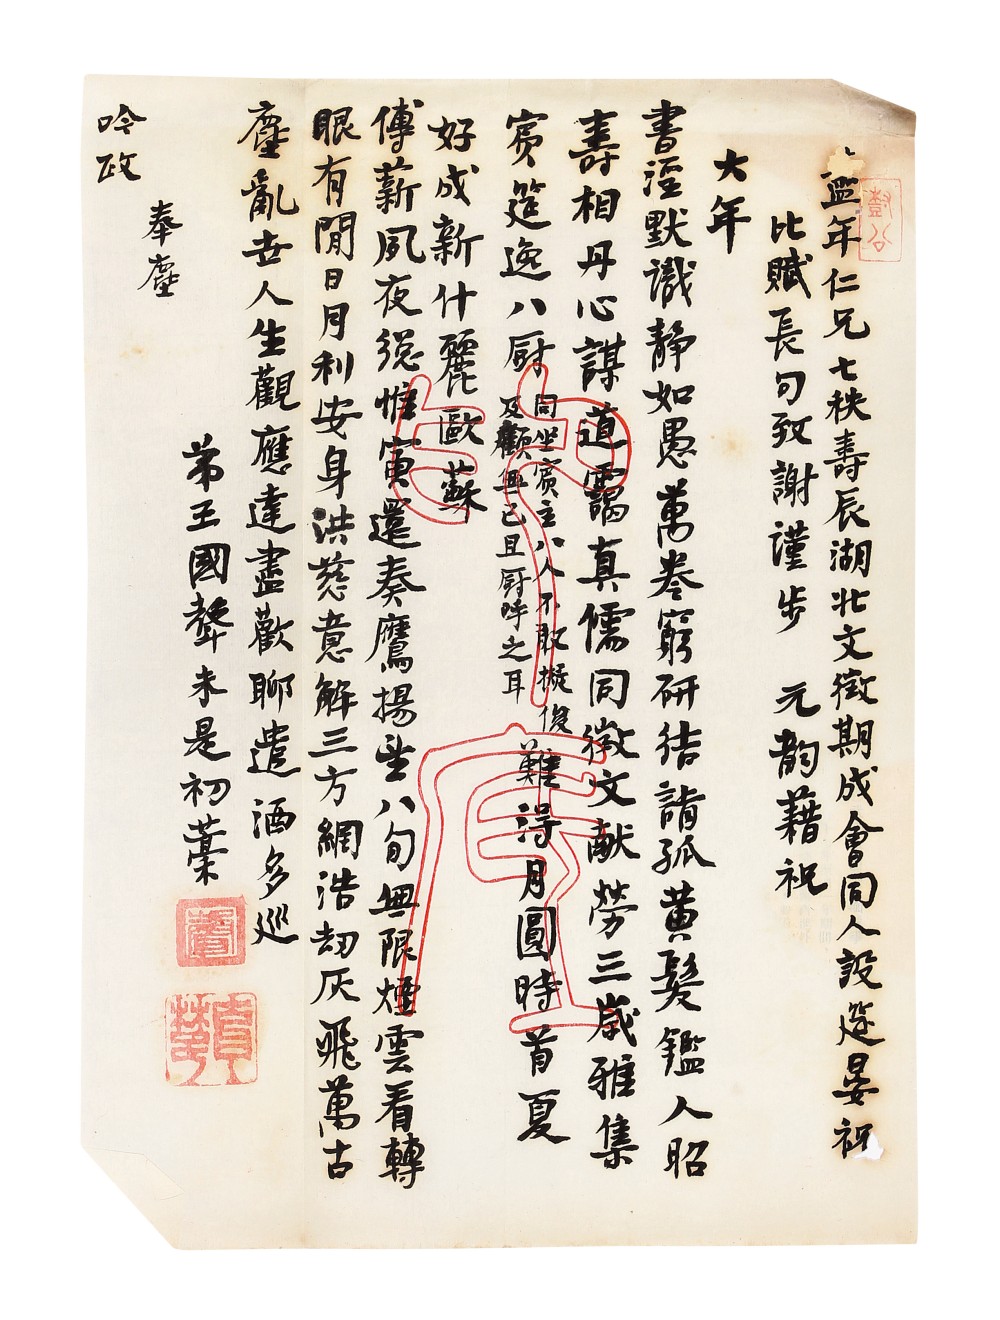 孟年仁兄七秩壽辰湖北文徵期成會同人設筵晏祝
比賦長句致謝謹步　元韵藉祝
大年
書淫默識靜如愚萬卷窮研結譜孤黄髮鑑人昭
壽相丹心謀道靄真儒同徵文献勞三歲雅集
賓筵逸八厨
同坐賓主八人不敢擬俊
及顧無已且厨呼之耳
難得月圓時首夏
好成新什麗歐蘇
傳薪夙夜總惟寅還奏鷹揚望八旬無限煙雲看轉
眼有閒日月利安身洪慈意解三方網浩劫灰飛萬古
塵亂世人生觀應達盡歡聊遣酒多巡
奉塵
吟政
弟王國聲未是初藁